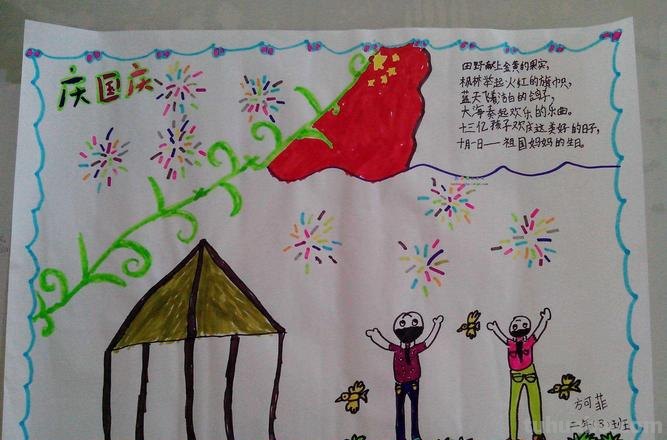 庆国庆
田野献上金黄的果实,
枫林举起火红的旗帜,
蓝天飞着洁白的鸽子,
大海奏起欢乐的乐曲。
十三亿孩子欢庆这美好的日子,
十月一日——祖国妈妈的生日。
方可菲
二年(3)班